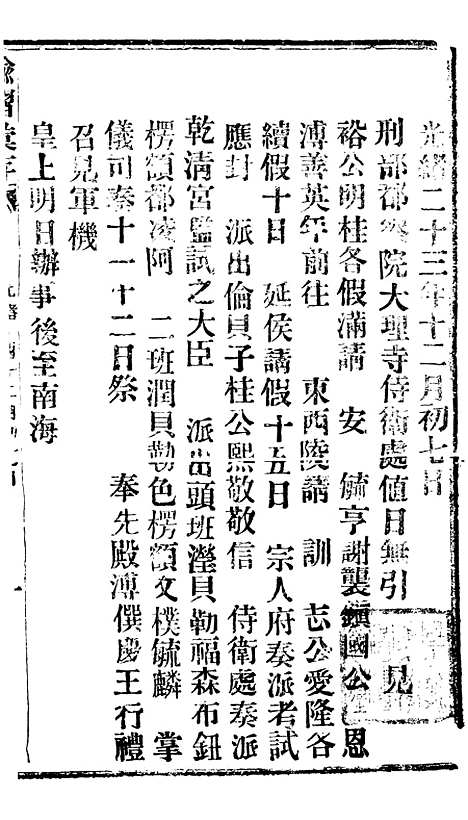 光緒二十三年十二月初七日
刑部都察院大理寺侍衛處值日無引　見
裕公明桂各假滿請　安　毓亨謝襲鎮國公　恩
溥善英年前往　東西陵請　訓　志公愛隆各
續假十日　延侯請假十五日　宗人府奏派考試
應封　派出倫貝子桂公熙敬敬信　侍衛處奏派
乾清宮監試之大臣　派出頭班瀅貝勒福森布鈕
楞額都凌阿　二班潤貝勒色楞額文樸毓麟　掌
儀司奏十一十二日祭　奉先殿溥僎慶王行禮
召見軍機
皇上明日辦事後至南海